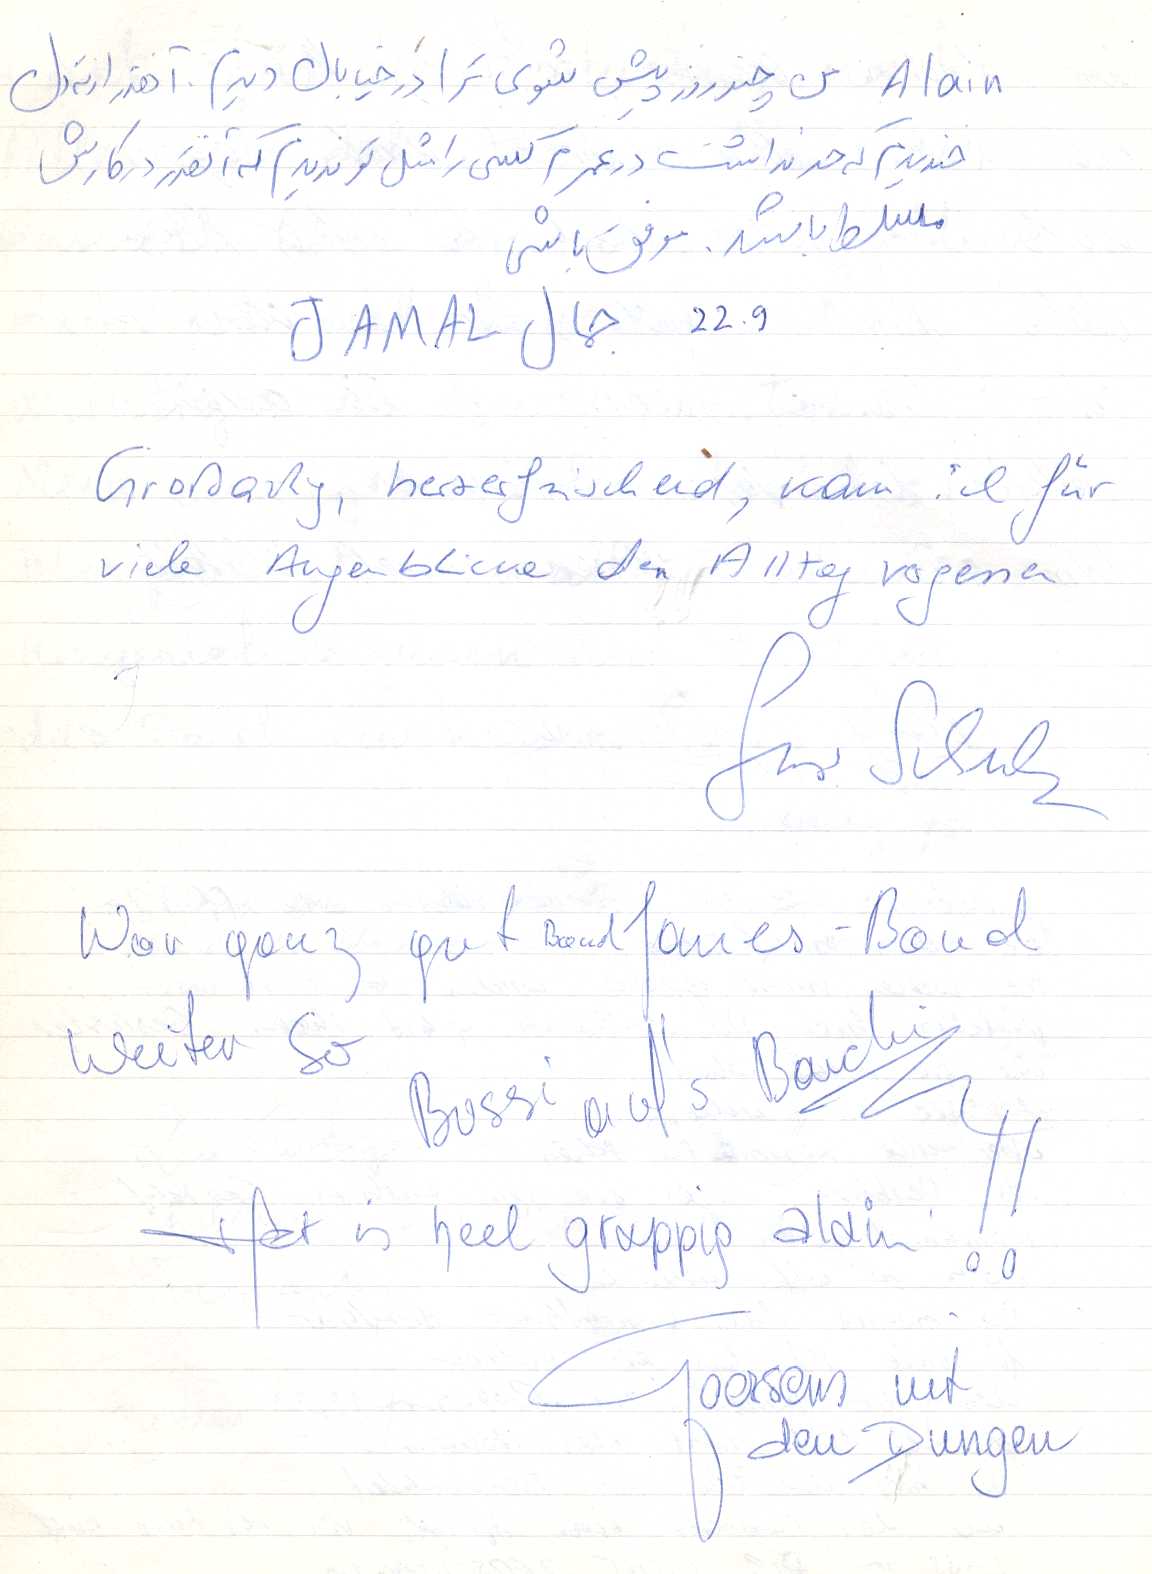 Alain من چند روز پیش شوی ترا در خیابان دیدم. آنقدر از ته دل
خندیدم که حد نداشت در عمرم کسی را مثل تو ندیدم که آنقدر در کارش
مسلط باشد. موفق باشی
JAMAL جمال 22.9
Großartig, herzerfrischend, kann ich für
viele Augenblicke den Alltag vergessen
Schulz
War ganz gut Band James-Bond
weiter so
Bussi auf's Bauchi
Het is heel grappig alain !!
Goersens uit
den Dungen